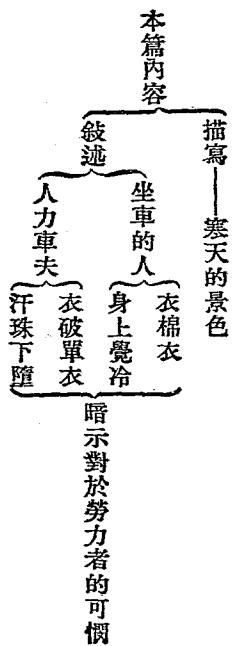 本篇內容
描寫——寒天的景色
敍述
坐車的人
衣棉衣
身上覺冷
人力車夫
衣破單衣
汗珠下墮
暗示對於勞力者的可憫